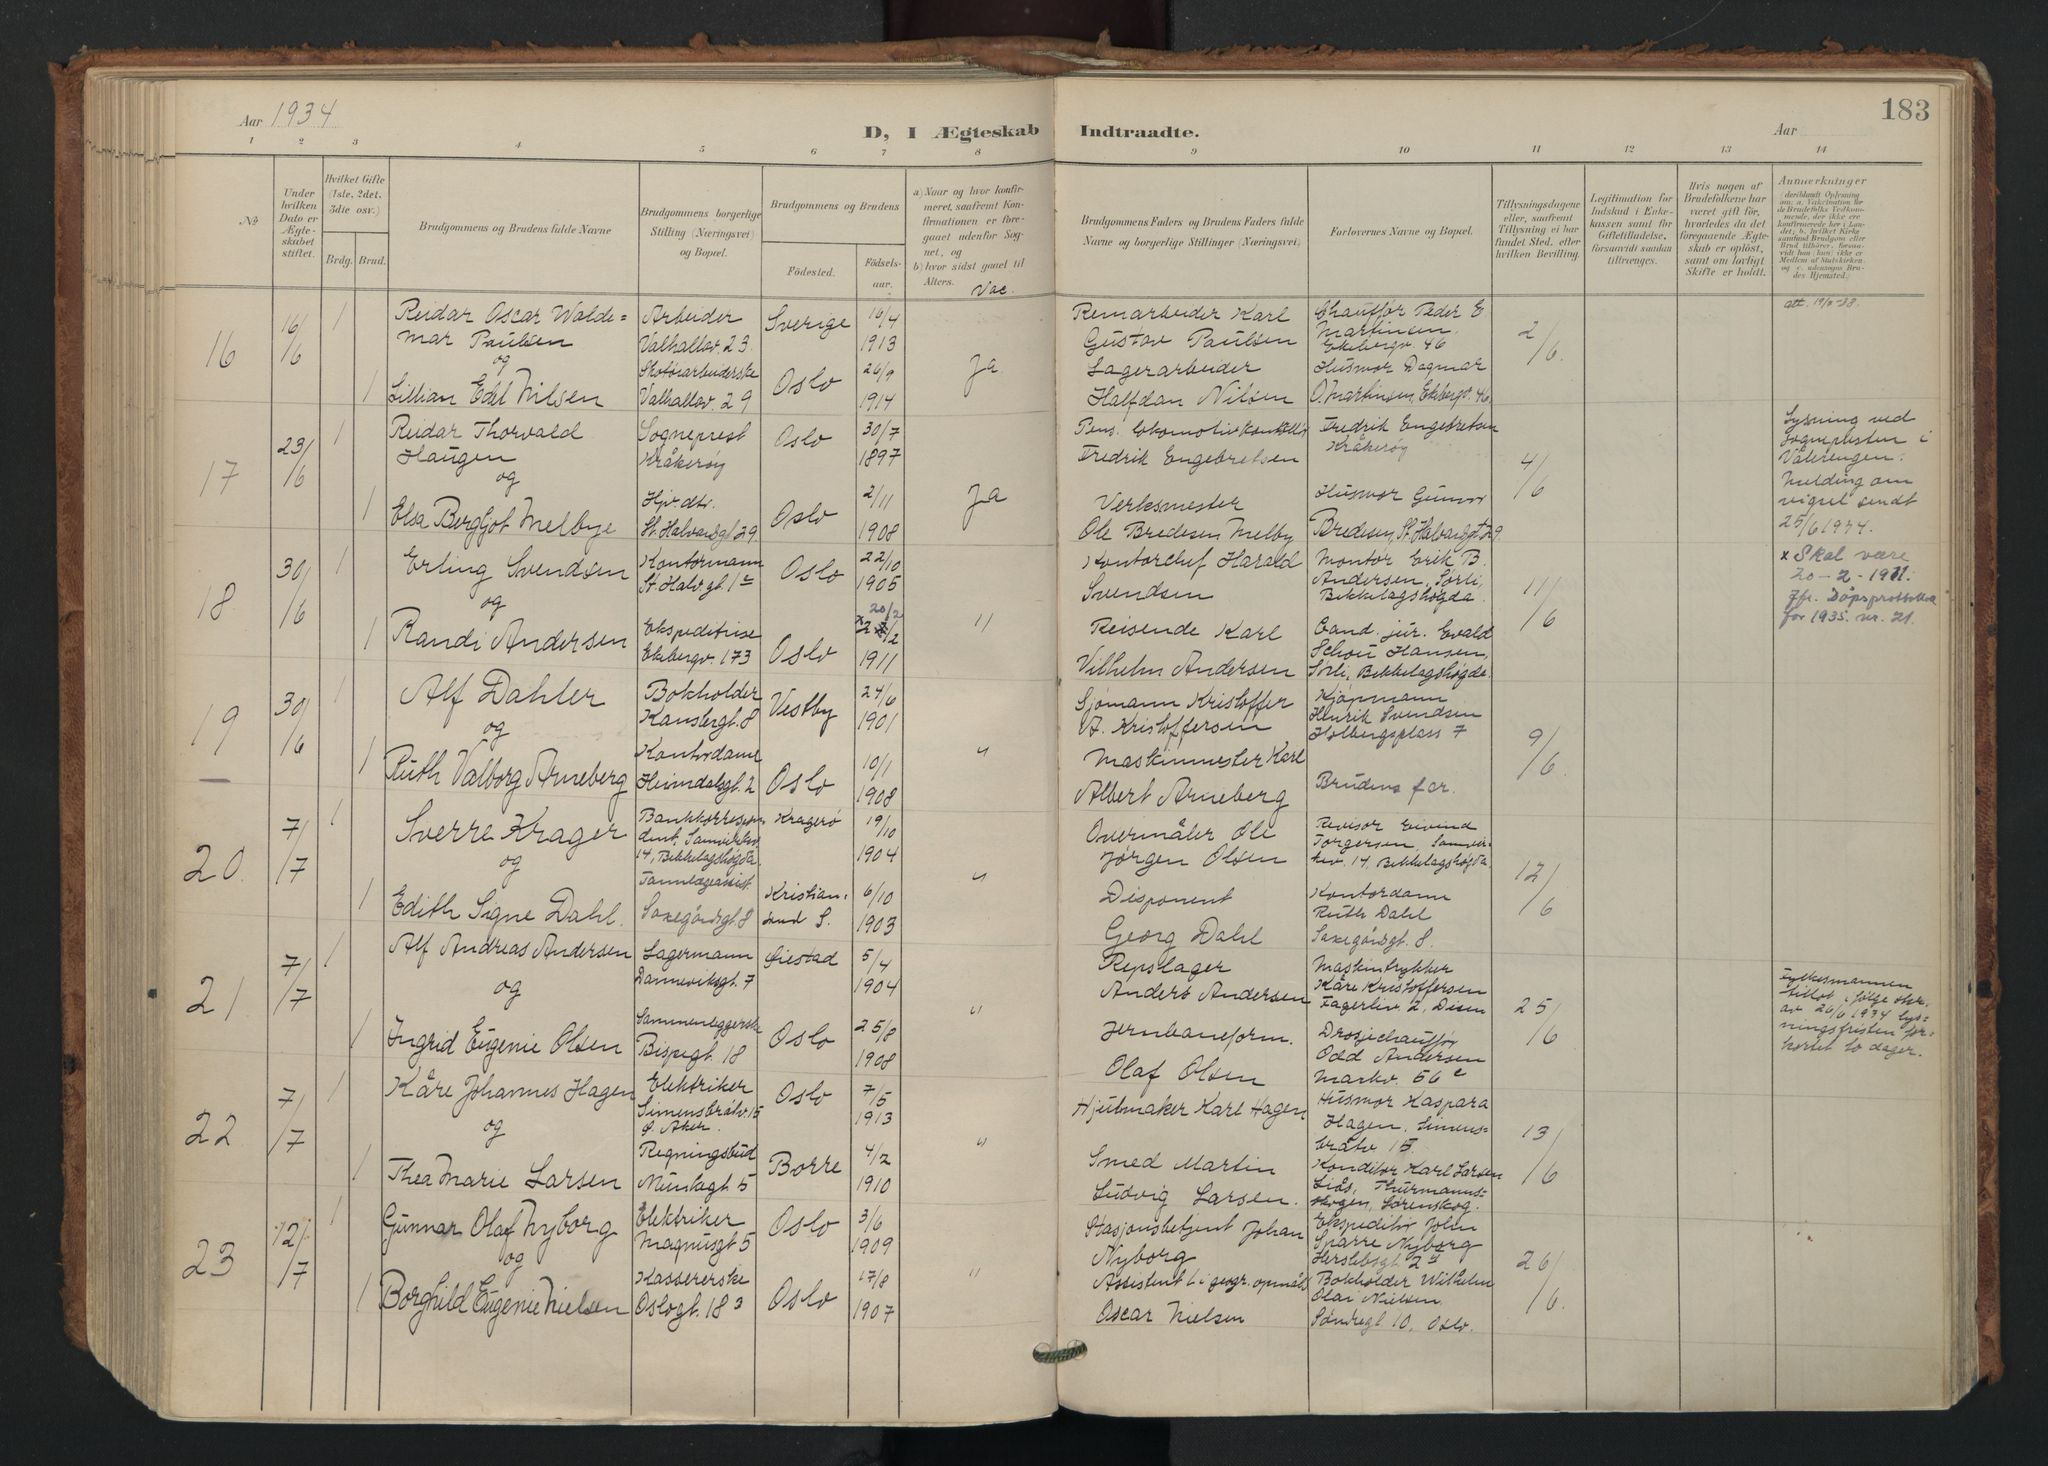 Aar 1934
D, I Ægteskab Indtraadte.
Aar
183
1 2 3 4 5 6 7 8 9 10 11 12 13 14
№
Under hvilken Dato er Ægteskabet stiftet.
Hvilket Gifte (1ste, 2det, 3die osv.)
Brdg. Brud.
Brudgommens og Brudens fulde Navne
Brudgommens borgerlige Stilling (Næringsvei) og Bopæl.
Brudgommens og Brudens
Födested.
Födsels-aar.
a) Naar og hvor konfirmeret, saafremt Konfirmationen er foregaaet udenfor Sognet, og
b) hvor sidst gaaet til Alters.
Vac.
Brudgommens Faders og Brudens Faders fulde Navne og borgerlige Stillinger (Næringsvei).
Forlovernes Navne og Bopæl.
Tillysningsdagene eller, saafremt Tillysning ei har fundet Sted, efter hvilken Bevilling.
Legitimation for Indskud i Enkekassen samt for Giftetilladelse, forsaavidt saadan tiltrænges.
Hvis nogen af Brudefolkene har været gift før, hvorledes da det foregaaende Ægteskab er oplöst, samt om lovligt Skifte er holdt.
Anmerkninger
16
16/6
1
Reidar Oscar Walde=
mar Paulsen
og
1
Lillian Edel Nilsen
Arbeider
Valhallav. 23
Skotøiarbeiderske
Valhallav. 29
Sverige
Oslo
16/4
1913
26/9
1914
Ja
Remarbeider Karl
Gustav Paulsen
Lagerarbeider
Halfdan Nilsen
Chauffør Peder E
Martinsen
Ekebergv 46
Husmor Dagmar
O. Martinsen, Ekebergv. 46.
2/6
att. 19/8-38
17
23/6
1
Reidar Thorvald
Haugen
og
1
Elsa Bergljot Melbye
Sogneprest
Kråkerøy
Hjv. dtr.
St. Halvardsgt 29
Oslo
Oslo
30/7
1897
2/11
1908
Ja
Pens. lokomotivkontrollør
Fredrik Engebretsen
Verksmester
Ole Bredesen Melby
Fredrik Engebretsen
Kråkerøy
Husmor Gunvor
Bredesen, St. Halvardsgt 29.
4/6
Lysning ved
sognepresten i
Vålerengen.
Melding om
vigsel sendt
25/6 1934.
18
30/6
1
Erling Svendsen
og
1
Randi Andersen
Kontormann
St. Halv. gt. 1c
Ekspeditrise
Ekebergv. 173
Oslo
Oslo
22/10
1905
x 20/2
1911
"
Kontorchef Harald
Svendsen
Reisende Karl
Vilhelm Andersen
Montør Erik B.
Andersen, Sørli,
Bekkelagshøgda
Cand. jur. Evald
Schou Hansen,
Sørli, Bekkelagshøgda.
11/6
x Skal være
20-2-1911.
Jfr. Dåpsprotokoll
for 1935. nr. 21.
19
30/6
1
Alf Dahler
og
1
Ruth Valborg Arneberg
Bokholder
Kanslergt. 8
Kontordame
Heimdalsgt. 2
Vestby
Oslo
24/6
1901
10/1
1908
"
Sjømann Kristoffer
A. Kristoffersen
Maskinmester Karl
Albert Arneberg
Kjøpmann
Henrik Svendsen
Holbergsplass 7
Brudens far.
9/6
20.
7/7
1
Sverre Krager
og
1
Edith Signe Dahl.
Bankkorrespon
dent, Samvirkev.
14, Bekkelagshøgda.
Tannlegeassist.
Saxegårdsgt. 8
Kragerø
Kristian-
sund S.
19/10
1904
6/10
1903
"
Overmåler Ole
Jørgen Olsen
Disponent
Georg Dahl
Revisor Eivind
Torgersen, Samvir-
kev. 14, Bekkelagshøgda
Kontordame
Ruth Dahl
Saxegårdsgt. 8.
12/6
21.
7/7
1
Alf Andreas Andersen
og
1
Ingrid Eugenie Olsen
Lagermann
Dannevirksgt. 7
Sammenleggerske
Bispegt. 18
Øiestad
Oslo
5/4
1904
25/8
1908
"
Repslager
Anders Andersen
Jernbaneform.
Olaf Olsen
Maskintrykker
Kåre Kristoffersen
Fagerliv. 2, Disen
Drosjechauffør
Odd Andersen
Markv. 56c
25/6
Fylkesmannen
tillot i følge skr.
av 26/6 1934 lys-
ningsfristen for-
kortet 10 dager.
22.
7/7
1
Kåre Johannes Hagen
og
1
Thea Marie Larsen
Elektriker
Simensbråtv. 15
Ø. Aker.
Regningsbud
Munkegt 5
Oslo
Borre
7/5
1913
4/2
1910
"
Hjulmaker Karl Hagen
Smed Martin
Ludvig Larsen.
Husmor Kaspara
Hagen, Simens-
bråtv 15.
Konditor Karl Larsen
Liås, Thurmanns-
skogen, Lørenskog.
13/6
23
12/7
1
Gunnar Olaf Nyborg
og
1
Borghild Eugenie Nielsen
Elektriker
Magnusgt 5
Kassererske
Oslogt. 18
Oslo
Oslo
3/6
1909
17/8
1907
"
Stasjonsbetjent Johan
Nyborg
Assistent i geogr. opmål
Oscar Nielsen
Ekspeditør John
Sparre Nyborg
Herslebsgt 24
Bokholder Wilhelm
Olai Nielsen.
Søndregt. 10, Oslo.
26/6